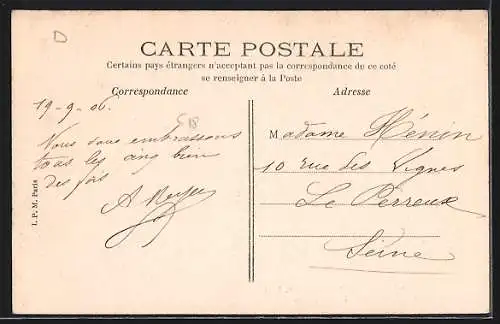 D
CARTE POSTALE
Certains pays étrangers n'acceptant pas la correspondance de ce coté
se renseigner à la Poste
Correspondance
Adresse
19-9-06.
E18
Nous vous embrassons
tous les cinq bien
des fois
A
Madame Hénin
10 rue des Vignes
Le Perreux
Seine
I. P. M. Paris